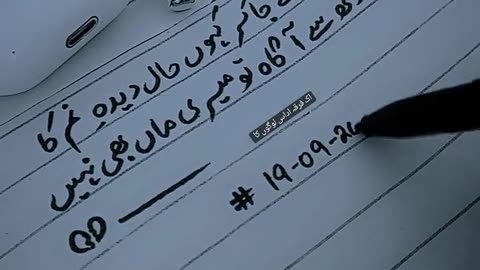 جا کر کہوں حال دیدہِ کا
سے آگاہ تو میری ماں بھی نہیں
اک فرقہ اداس لوگوں کا
QD —
# 19-09-24